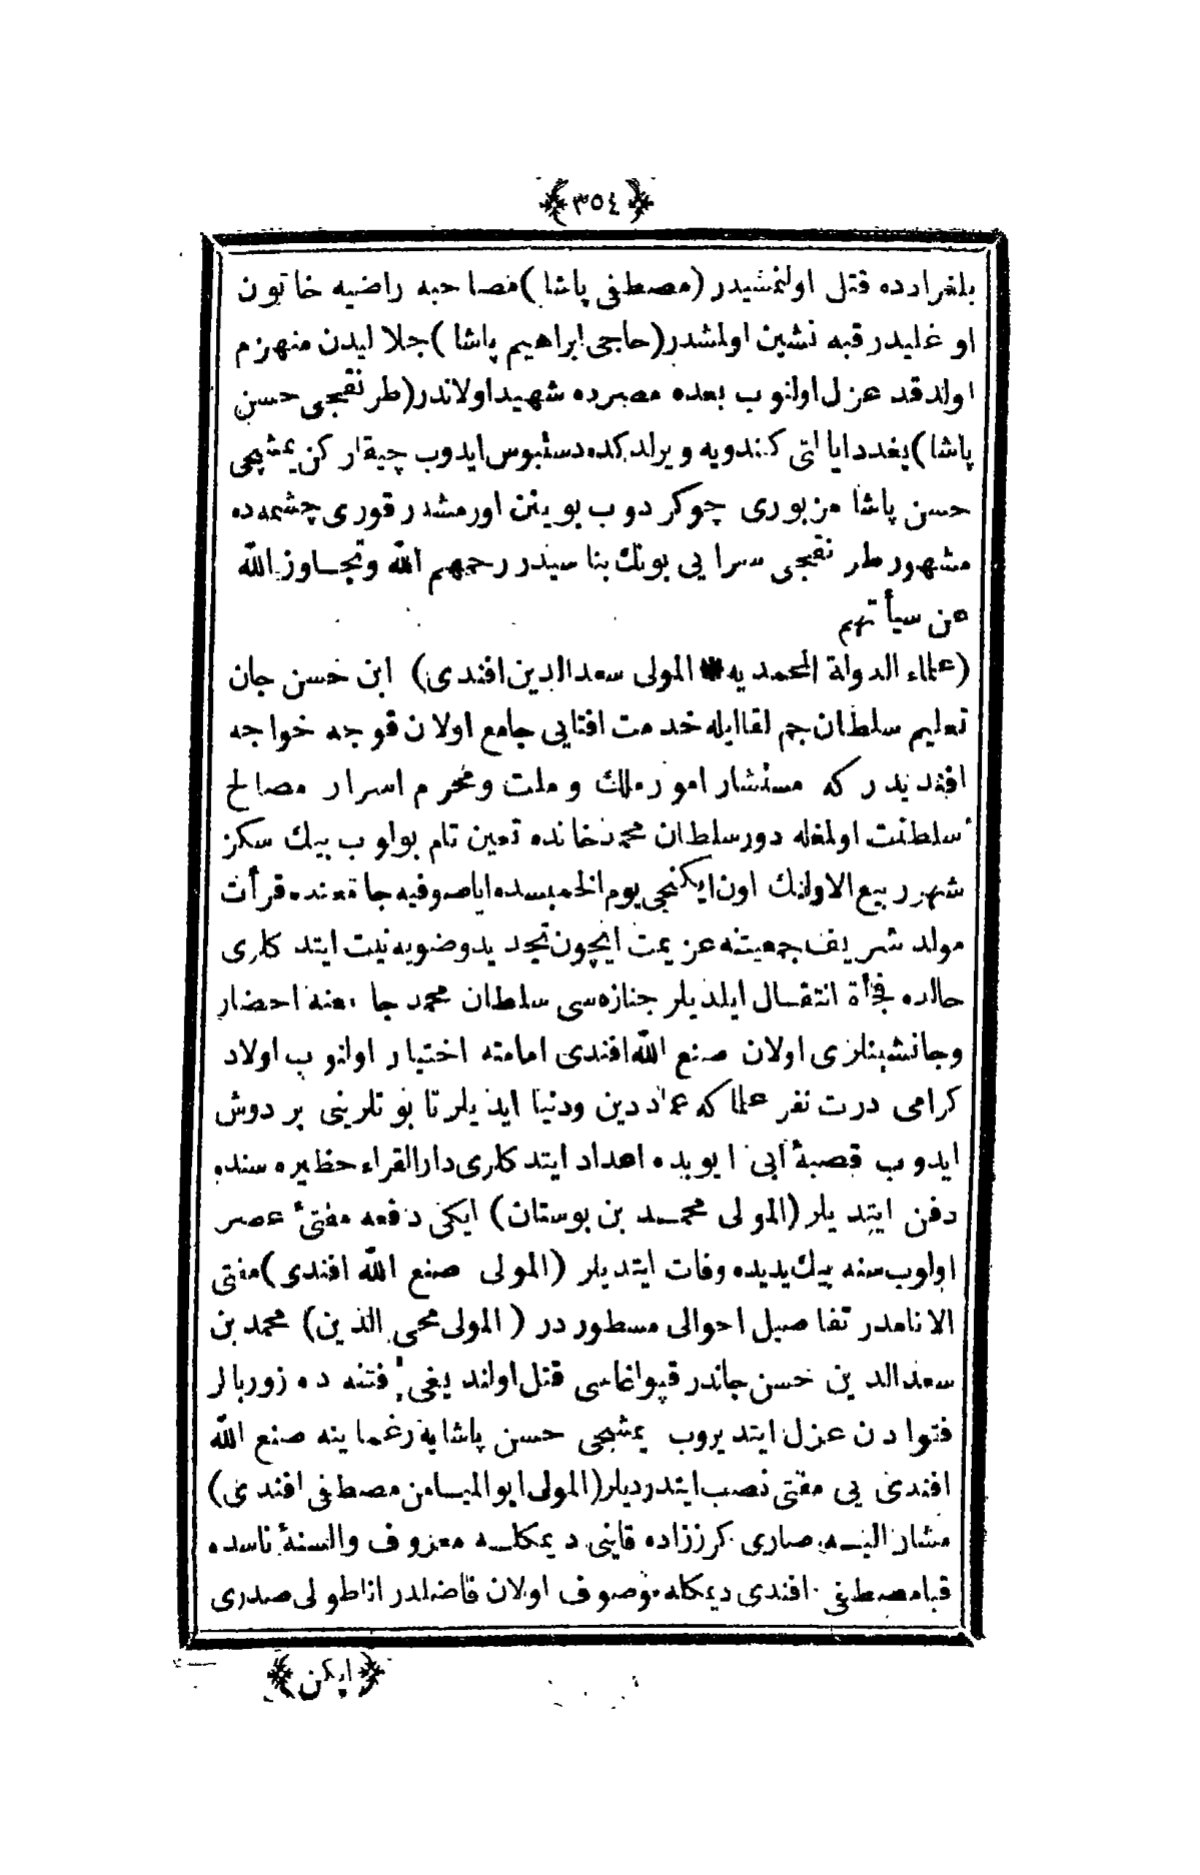 ﴿٣٥٤﴾
بلغرادده قتل اولنمشيدر (مصطفى پاشا) مصاحبه راضيه خاتون
اوغليدر قبه نشين اولمشدر (حاجى ابراهيم پاشا) جلاليدن منهزم
اولدقده عزل اولنوب بعده مصرده شهيد اولاندر (طرنقجى حسن
پاشا) بغداد ايالتى كندويه ويرلدكده دستبوس ايدوب چيقار كن يمشجى
حسن پاشا مزبورى چوكردوب بوينن اورمشدر قورى چشمه ده
مشهور طرنقجى سرايى بونك بناسيدر رحمهم الله وتجاوز الله
عن سيأتهم
(علماء الدولة المحمديه * المولى سعدالدين افندى) ابن حسن جان
تعليم سلطان جم لقا ايله خدمت افتايى جامع اولان قوجه خواجه
افنديدر كه مستشار امور ملك و ملت ومحرم اسرار مصالح
سلطنت اولمغله دور سلطان محمد خانده تعين تام بولوب بيك سكز
شهر ربيع الاولنك اون ايكنجى يوم الخميسده اياصوفيه جامعنده قرأت
مولد شريف جمعيتنه عزيمت ايچون تجديد وضويه نيت ايتدكلرى
حالده فجأة انتقال ايلديلر جنازه سى سلطان محمد جامعنه احضار
وجانشينلرى اولان صنع الله افندى امامته اختيار اولنوب اولاد
كرامى درت نفر علما كه عماد دين ودنيا ايديلر تابوتلرينى بر دوش
ايدوب قصبۀ ابى ايوبده اعداد ايتدكلرى دارالقراء حظيره سنده
دفن ايتديلر (المولى محمد بن بوستان) ايكى دفعه مفتئ عصر
اولوب سنه بيك يديده وفات ايتديلر (المولى صنع الله افندى) مفتى
الانامدر تفاصيل احوالى مسطوردر (المولى محى الدين) محمد بن
سعدالدين حسن جاندر قپو اغاسى قتل اولنديغى فتنه ده زوربالر
فتوادن عزل ايتديروب يمشجى حسن پاشايه رغما ينه صنع الله
افندى يى مفتى نصب ايتدرديلر (المولى ابو الميامن مصطفى افندى)
مشار اليه صارى كرززاده قاينى ديمكله معروف والسنۀ ناسده
قبا مصطفى افندى ديمكله موصوف اولان فاضلدر اناطولى صدرى
﴿ايكن﴾